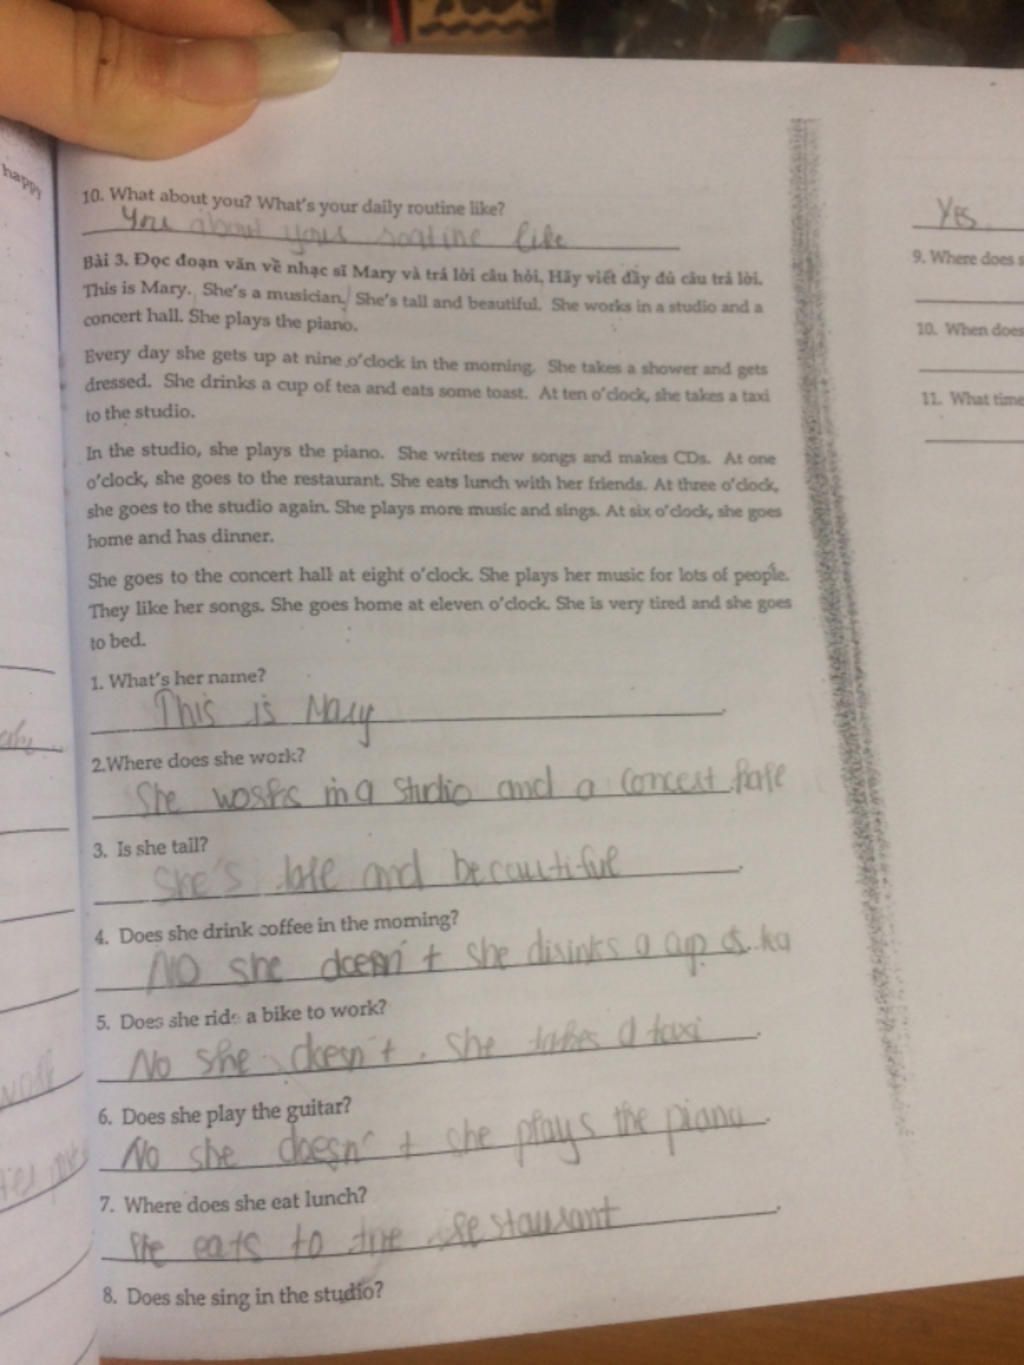 happy
10. What about you? What's your daily routine like?
You about your routine like
Bài 3. Đọc đoạn văn về nhạc sĩ Mary và trả lời câu hỏi. Hãy viết đầy đủ câu trả lời.
This is Mary. She's a musician. She's tall and beautiful. She works in a studio and a
concert hall. She plays the piano.
Every day she gets up at nine o'clock in the morning. She takes a shower and gets
dressed. She drinks a cup of tea and eats some toast. At ten o'clock, she takes a taxi
to the studio.
In the studio, she plays the piano. She writes new songs and makes CDs. At one
o'clock, she goes to the restaurant. She eats lunch with her friends. At three o'clock,
she goes to the studio again. She plays more music and sings. At six o'clock, she goes
home and has dinner.
She goes to the concert hall at eight o'clock. She plays her music for lots of people.
They like her songs. She goes home at eleven o'clock. She is very tired and she goes
to bed.
1. What's her name?
This is Mary
2.Where does she work?
She works in a studio and a concert hall
3. Is she tall?
She's tall and beautiful
4. Does she drink coffee in the morning?
NO she doesn't she drinks a cup of tea
5. Does she ride a bike to work?
No she doesn't. she takes a taxi
6. Does she play the guitar?
No she doesn't she plays the piano
7. Where does she eat lunch?
She eats to the restaurant
8. Does she sing in the studio?
Yes
9. Where does s
10. When does
11. What time